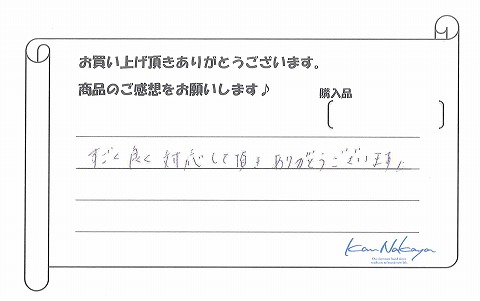 お買い上げ頂きありがとうございます。
商品のご感想をお願いします♪
購入品
すごく良く対応して頂きありがとうございます!
KanNakaya